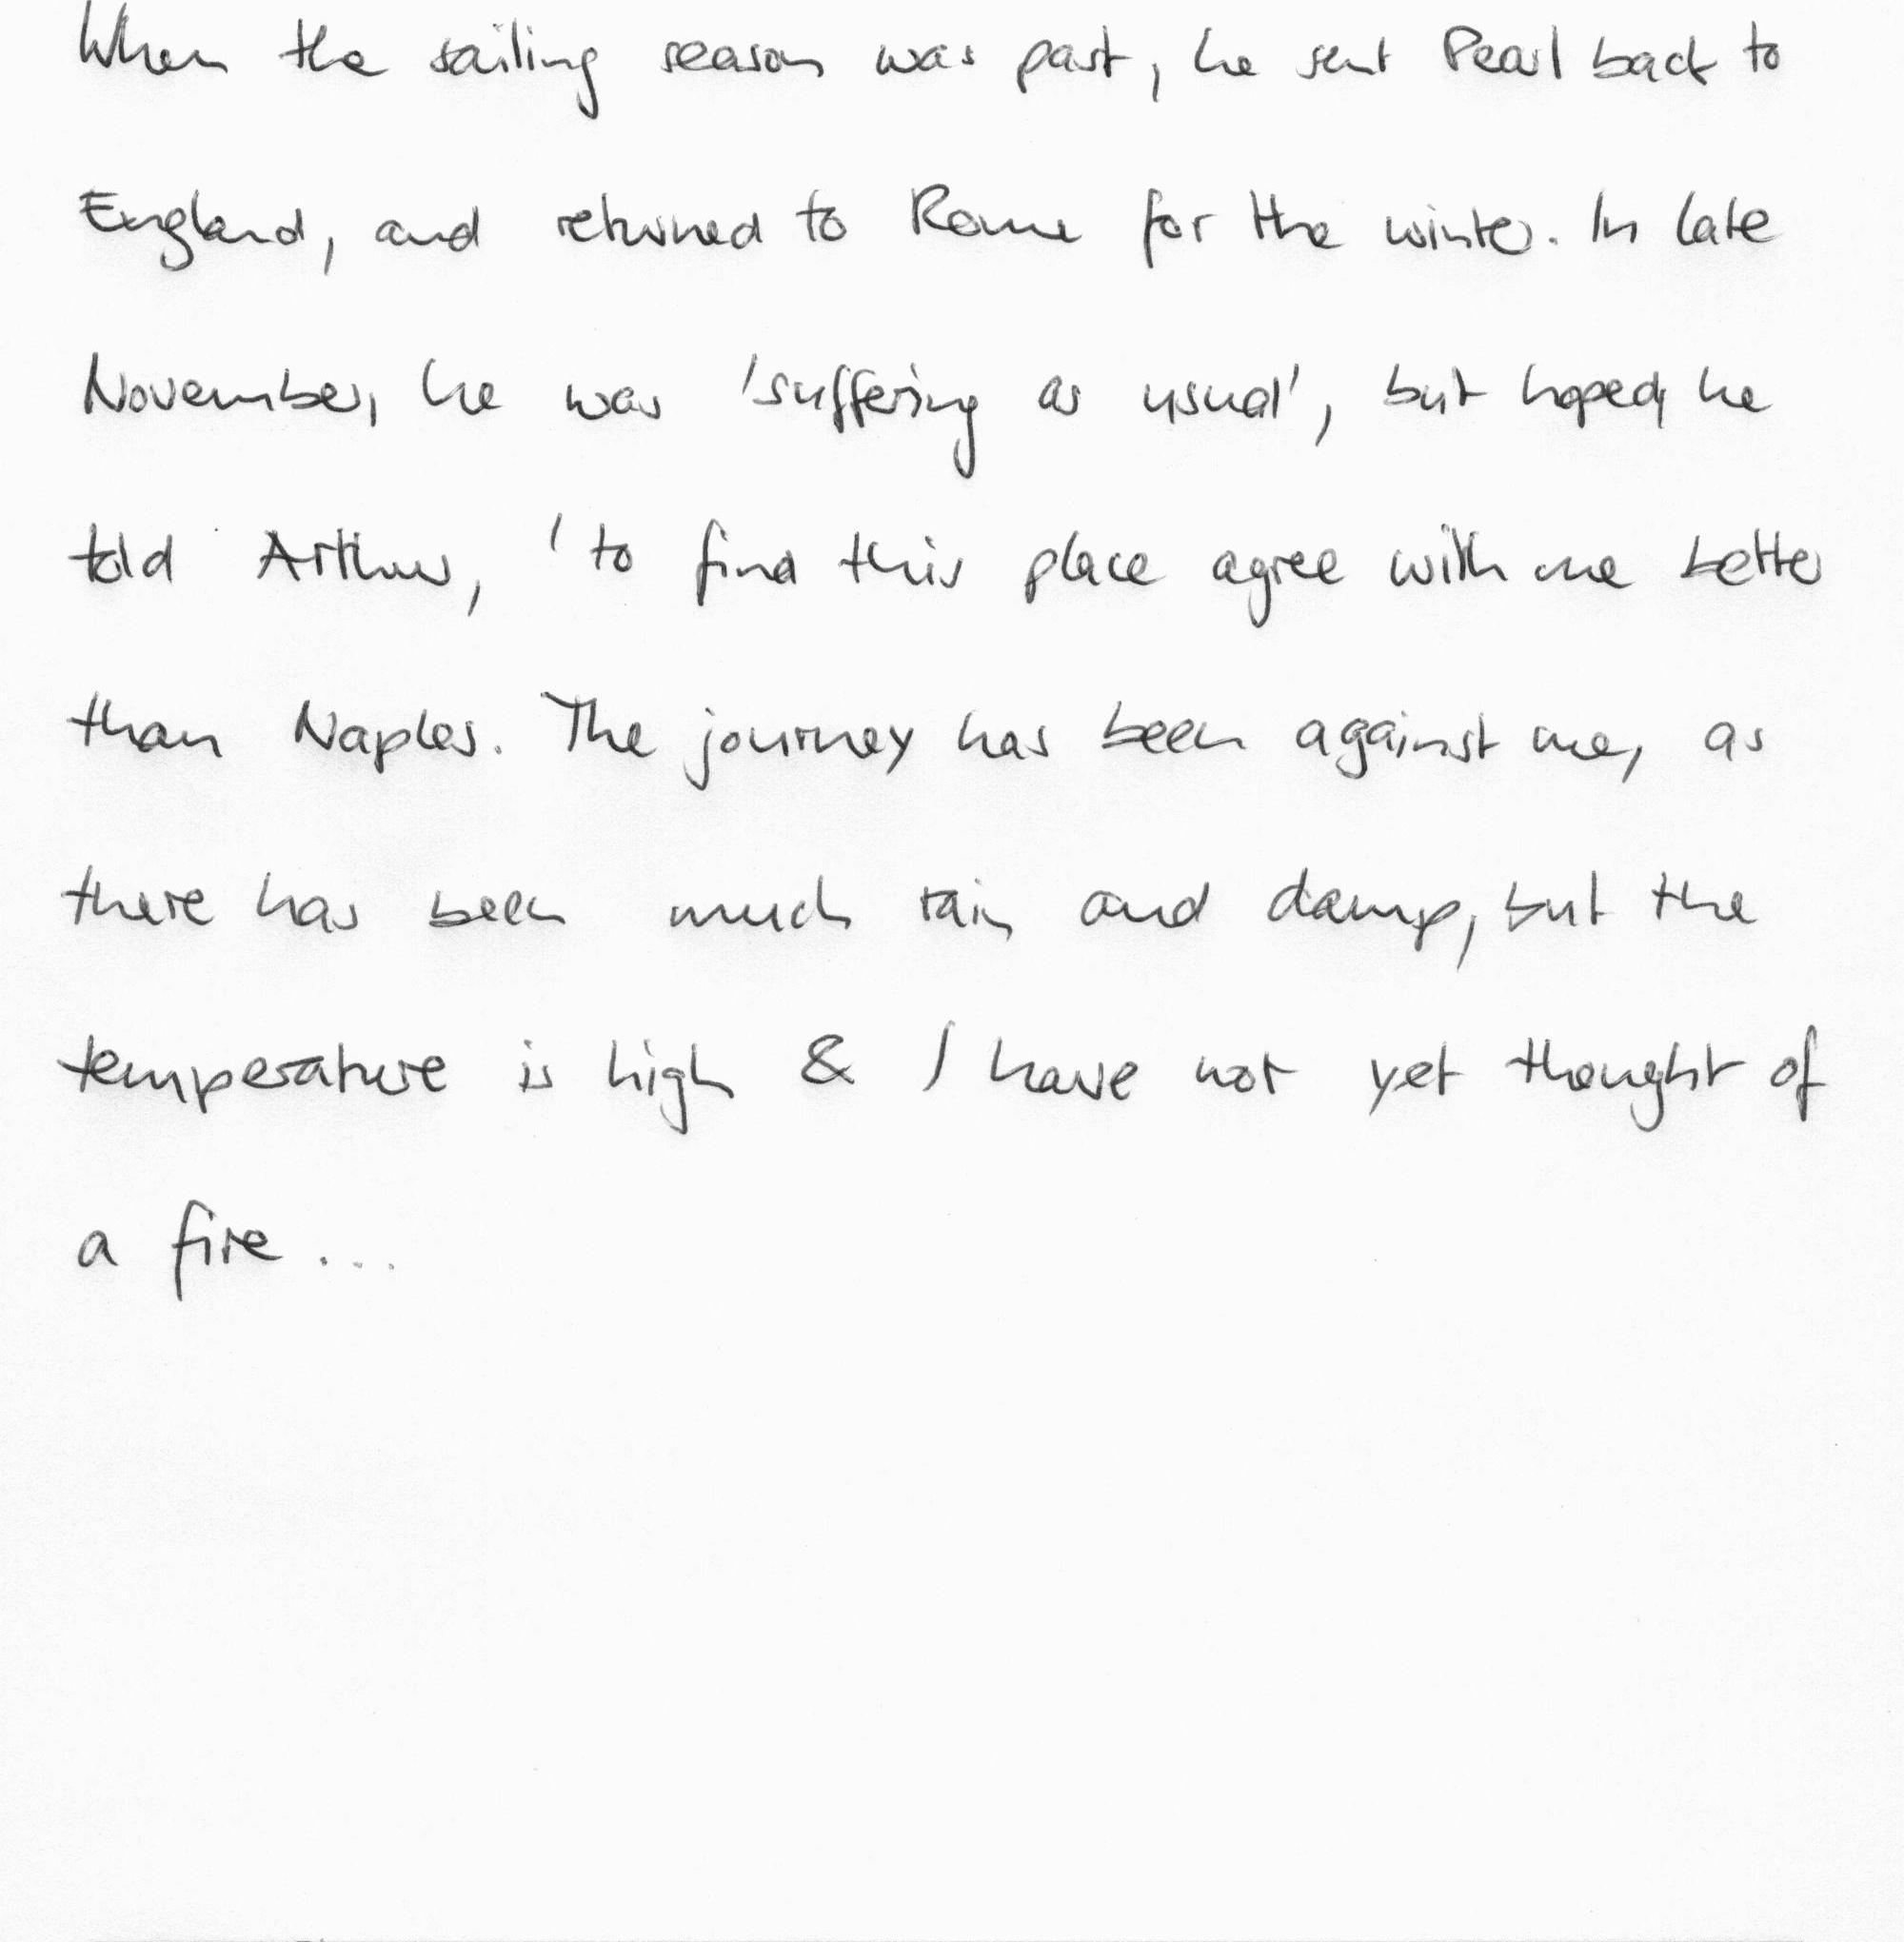 When the sailing season was past, he sent Pearl back to
England, and returned to Rome for the winter. In late
November, he was 'suffering as usual', but hoped, he
told Arthur, 'to find this place agree with me better
than Naples. The journey has been against me, as
there has been much rain and damp, but the
temperature is high & I have not yet thought of
a fire ...